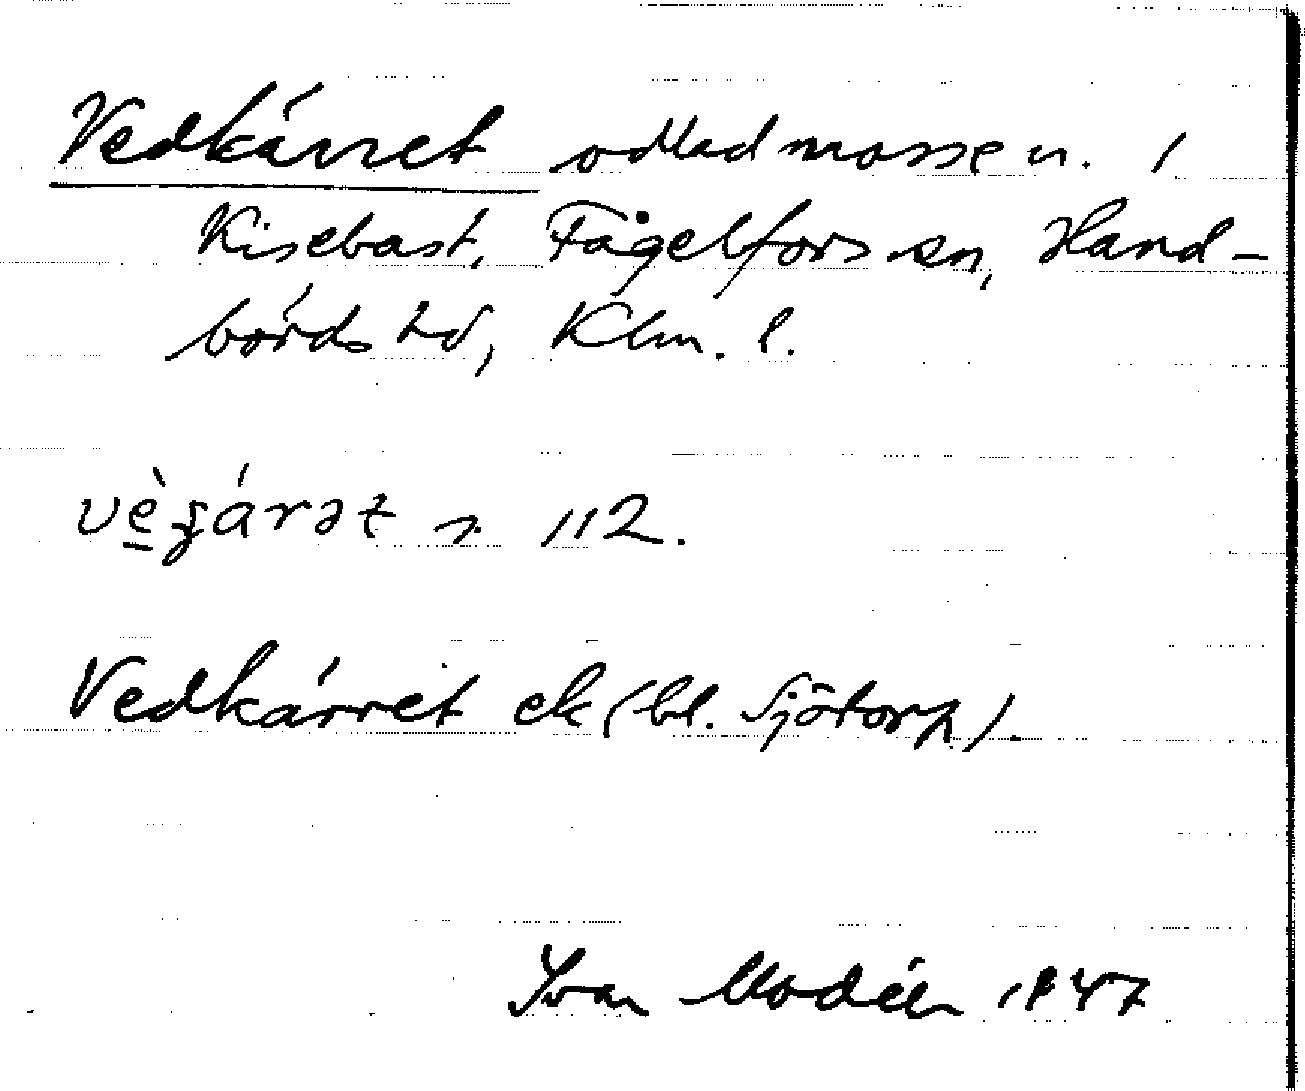 Vedkärret odlad mosse n. i
Kisebast, Fågelfors sn, Hand-
börds hd, Klm. l.
112.
Vedkärret ek (bl. Sjötorp).
Ivar Modéer 1947